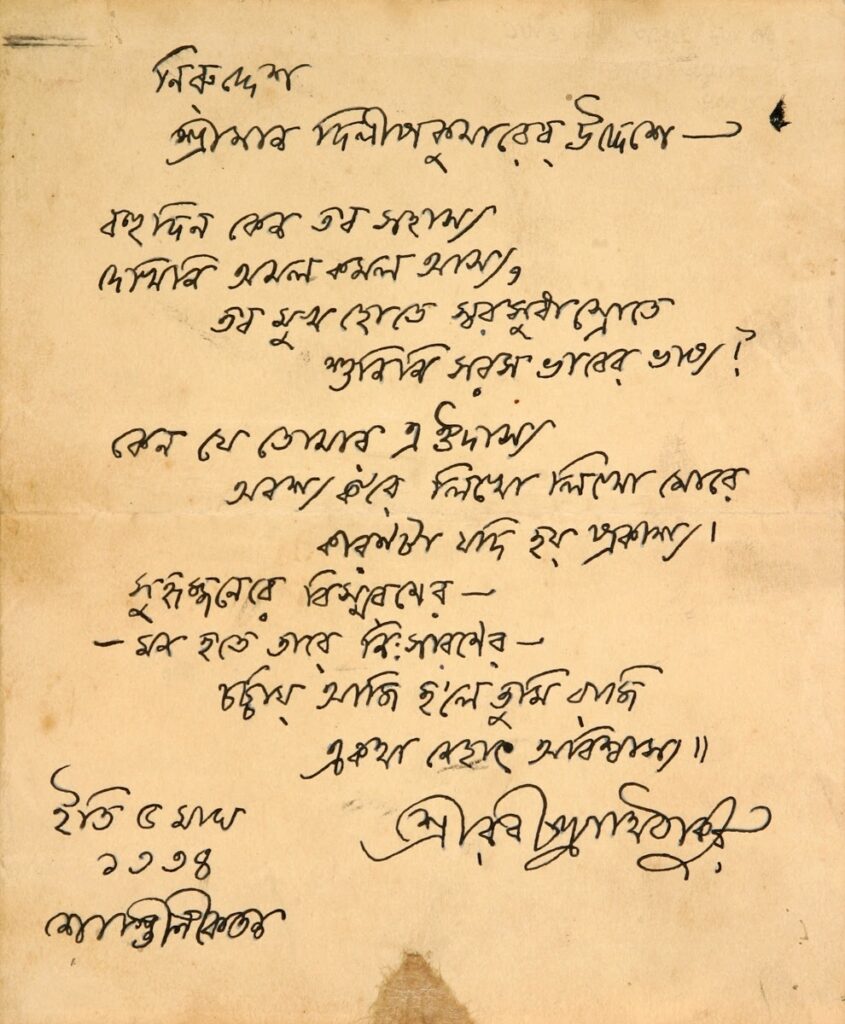 নিরুদ্দেশ
শ্রীমান দিলীপকুমারের উদ্দেশে —
বহুদিন কেন তব সহাস্য
দেখিনি অমল কমল আস্য,
তব মুখ হোতে স্বরসুধাস্রোতে
শুনিনি সরস ভাবের ভাষ্য?
কেন যে তোমার এ ঔদাস্য
অবশ্য ক'রে লিখো লিখো মোরে
কারণটা যদি হয় প্রকাশ্য।
সুহৃজ্জনেরে বিস্মরণের —
— মন হতে তারে নিঃসারণের —
চর্চ্চায় আজি হ'লে তুমি রাজি
একথা নেহাৎ অবিশ্বাস্য॥
ইতি ৫ মাঘ
১৩৩৪
শান্তিনিকেতন
শ্রীরবীন্দ্রনাথ ঠাকুর